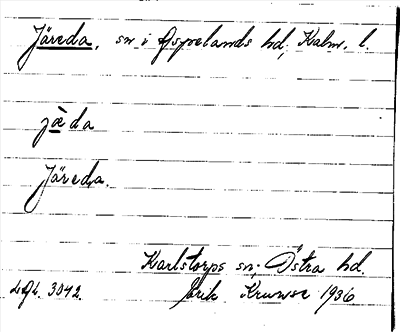 Järeda, sn i Aspelands hd, Kalm. l.
jæ̀da
Järeda.
Karlstorps sn; Östra hd.
Erik Kruuse 1936